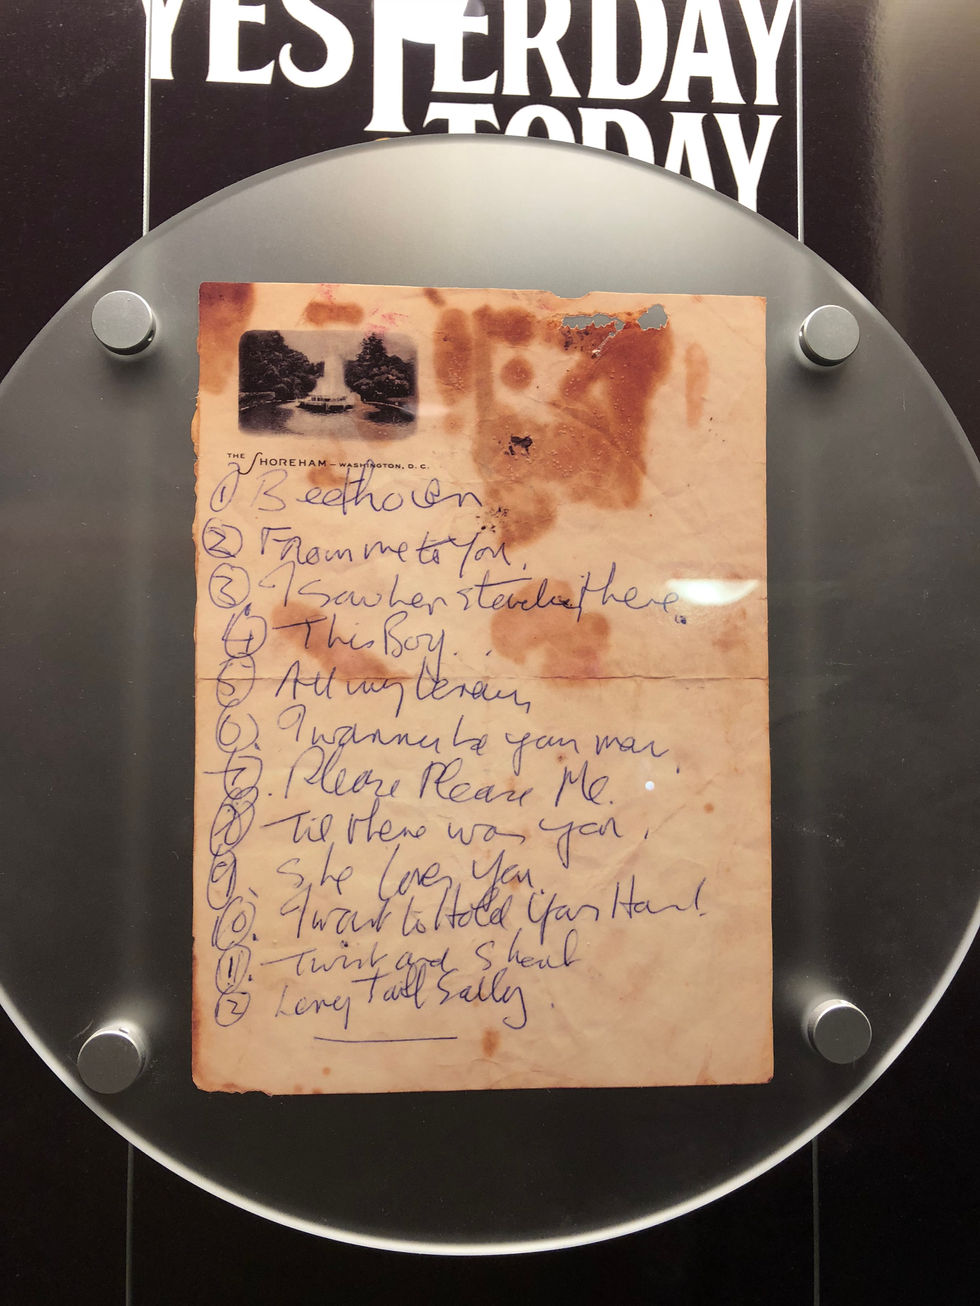 YESTERDAY
TODAY
THE SHOREHAM – WASHINGTON, D. C.
① Beethoven
② From me to You.
③. I Saw her standing there.
④ This Boy.
⑤ All my loving
⑥. I wanna be your man.
⑦. Please Please Me.
⑧ Till there was you.
⑨. She loves You.
⑩. I want to Hold Your Hand.
⑪. Twist and Shout
⑫ Long Tall Sally.